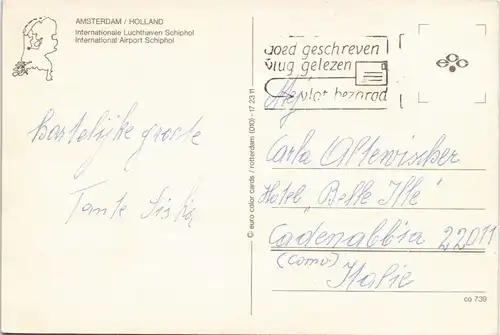 AMSTERDAM / HOLLAND
Internationale Luchthaven Schiphol
International Airport Schiphol
goed geschreven
vlug gelezen
vlot bezorgd
© euro color cards / rotterdam (010) - 17 23 11
Hartelijke groete
Tante
Mej
Carla Altewischer
Hotel "Belle Ile"
Cadenabbia 22011
(Como)
Italie
ca 739